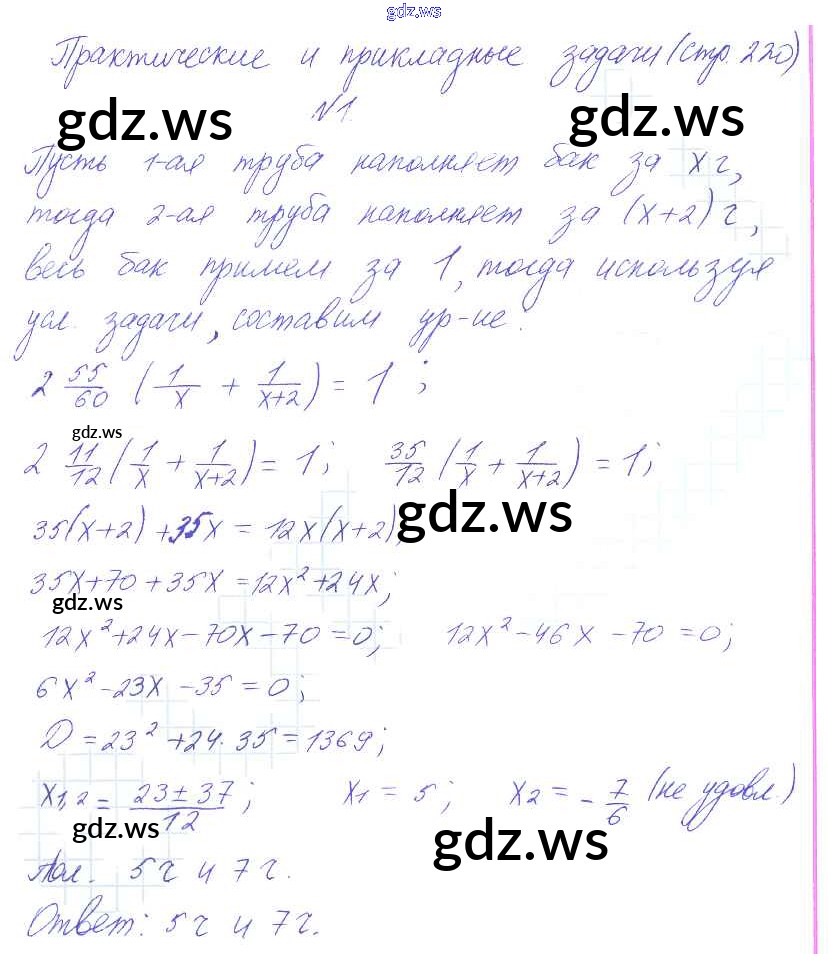 gdz.ws
Практические и прикладные задачи (стр. 220)
gdz.ws gdz.ws
№1.
Пусть 1-ая труба наполняет бак за x ч,
тогда 2-ая труба наполняет за (x+2) ч,
весь бак примем за 1, тогда используя
усл. задачи, составим ур-ие:
2 55/60 (1/x + 1/(x+2)) = 1;
gdz.ws
2 11/12 (1/x + 1/(x+2)) = 1; 35/12 (1/x + 1/(x+2)) = 1;
gdz.ws
35(x+2) + 35x = 12x(x+2);
35x+70+35x = 12x²+24x;
gdz.ws
12x²+24x-70x-70=0; 12x²-46x-70=0;
6x²-23x-35=0;
D=23²+24·35=1369;
x1,2 = (23±37)/12; x1 = 5; x2 = -7/6 (не удовл.)
gdz.ws gdz.ws
Пол. 5ч и 7ч.
Ответ: 5ч и 7ч.